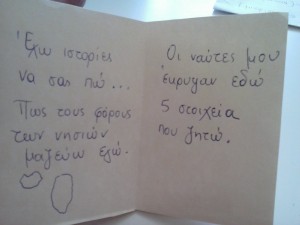 Έχω ιστορίες
να σας πώ...
Πως τους φόρους
των νησιών
μαζεύω εγώ.
Οι ναύτες μου
έκρυψαν εδώ
5 στοιχεία
που ζητώ.